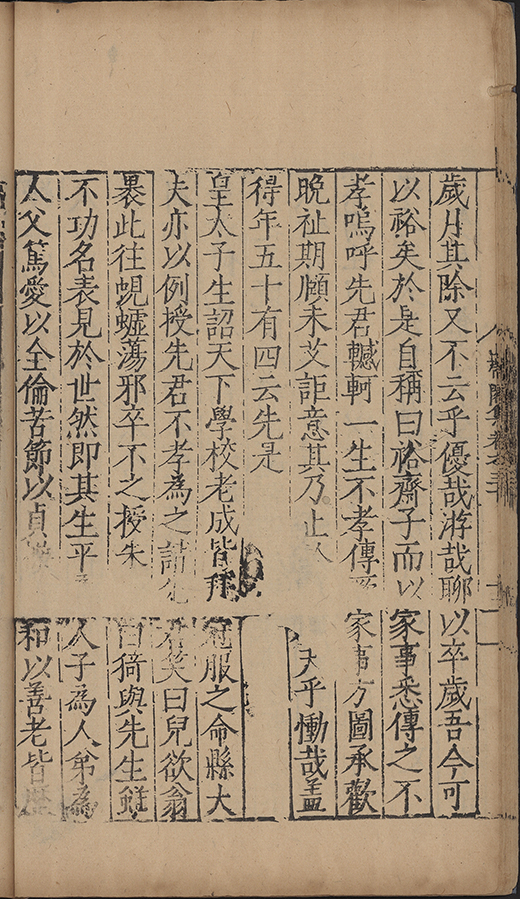 歲月其除又不云乎優哉游哉聊以卒歲吾今可
以裕矣於是自稱曰裕齋子而以家事悉傳之不
孝嗚呼先君轗軻一生不孝傳家事方圖承歡
晚祉期頤未艾詎意其乃止天乎慟哉蓋
得年五十有四云先是
皇太子生詔天下學校老成皆拜冠服之命縣大
夫亦以例授先君不孝為之請先君笑曰兒欲翁
裹此往蜺蠦蕩邪卒不之授朱白猗與先生雖
不功名表見於世然即其生平人子為人弟為
人父篤愛以全倫苦節以貞和以善老皆歷